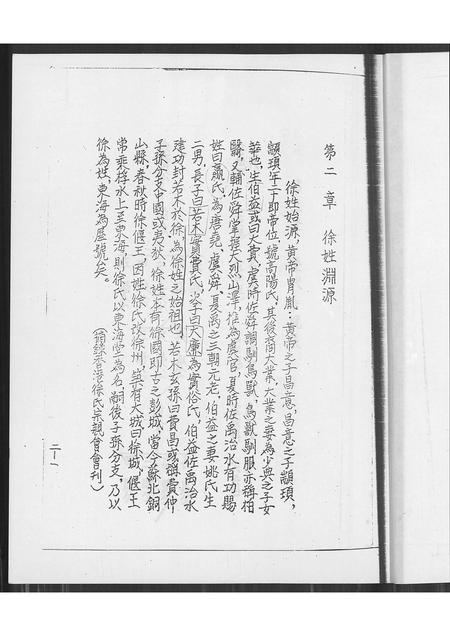 第二章 徐姓淵源
徐姓始源，黃帝胄胤：黃帝之子昌意，昌意之子顓頊，
顓頊年二十即帝位，號高陽氏，其後裔大業，大業之妻為少典之子女
華也，生伯益或曰大費，虞時佐舜調馴鳥獸，鳥獸馴服亦稱柏
翳，又輔佐舜掌握火烈山澤，推為虞官，夏時佐禹治水有功賜
姓曰嬴氏，為唐堯、虞舜、夏禹之三朝元老，伯益之妻姚氏生
二男，長子曰若木實費氏，少子曰大廉為實俗氏，伯益佐禹治水
建功封若木於徐，為徐姓之始祖也，若木玄孫曰費昌或稱費仲
子孫分支中國或夷狄，徐姓本有徐國即古之彭城，當今蘇北銅
山縣，春秋時徐偃王，因姓徐氏改徐州，其有大城曰徐城，偃王
常乘桴水上至東海，則徐氏以東海堂為名，嗣後子孫分支，乃以
徐為姓，東海為屋號矣。
（摘錄香港徐氏宗親會會刊）
二－1